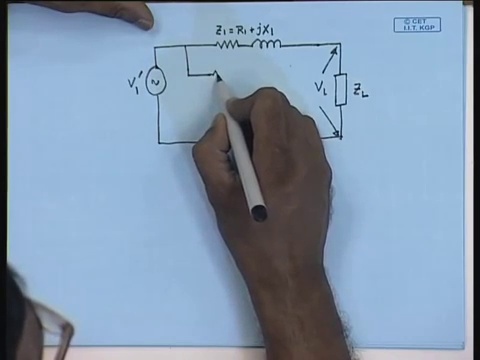 © CET
I.I.T. KGP
Z1 = R1 + jX1
V1′
~
VL
ZL